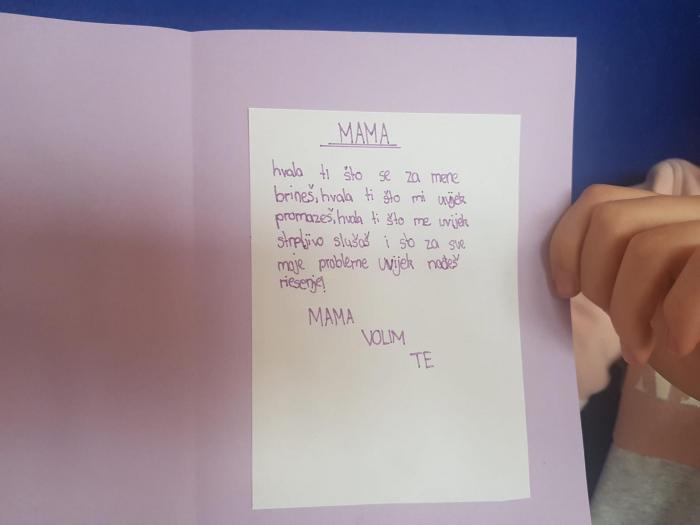 MAMA
hvala ti što se za mene
brineš, hvala ti što mi uvijek
promazeš, hvala ti što me uvijek
strpljivo slušaš i što za sve
moje probleme uvijek nađeš
riesenje!
MAMA
VOLIM
TE